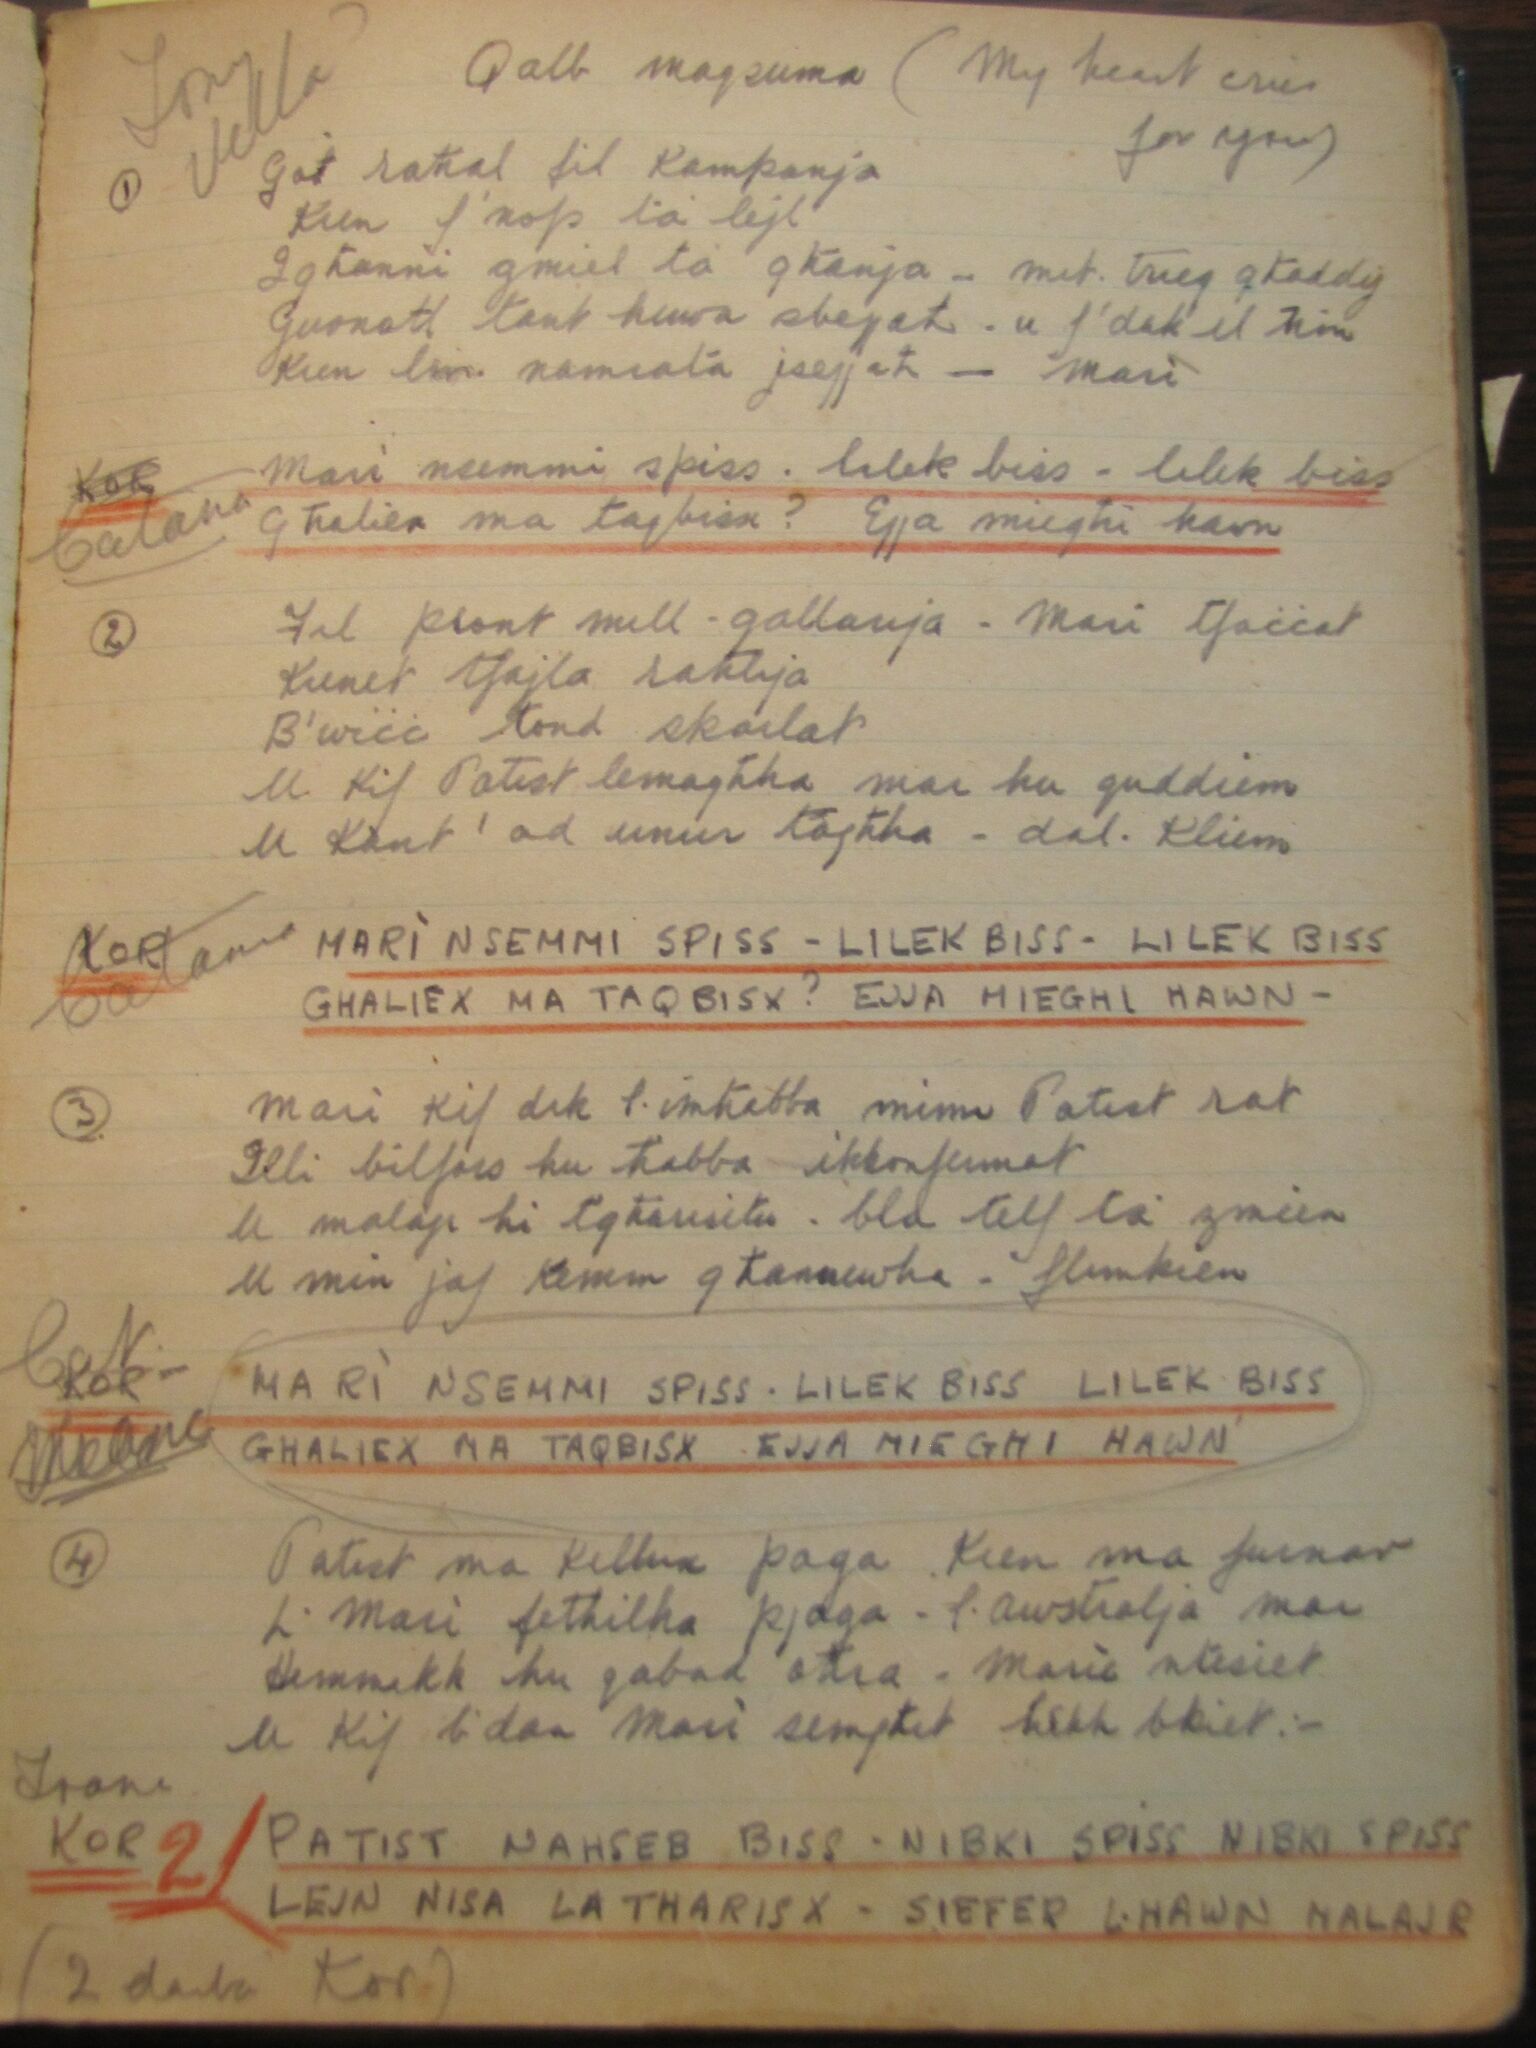 Tony Vella
Qalb maqsuma ( My heart cries
for you)
① Ġot raħal fil Kampanja
Kien f'nofs ta' lejl
Igħanni ġmiel ta għanja - met. trieq għaddej
tant huwa sbejjaħ - u f'dak il ħin
Kien lin. namrata jsejjaħ - Marì
KOR Marì nsemmi spiss. lilek biss - lilek biss
Għaliex ma taqbisx? Ejja miegħi hawn
② Fil pront mill-gallarija - Marì tfaċċat
Kienet tfajla raħlija
B'wiċċ tond skarlat
U Kif Patist lemagħha mar hu quddiem
U Kant' ad unur tagħha - dal. Kliem
KOR MARÌ NSEMMI SPISS - LILEK BISS - LILEK BISS
GHALIEX MA TAQBISX? EJJA MIEGHI HAWN -
③ Marì Kif dik l. imħabba minn Patist rat
Illi bilfors hu ħabba ikkonfermat
U malajr hi tgħarisitu. bla telf ta żmien
U min jaf kemm għannewha - flimkien
KOR MARÌ NSEMMI SPISS. LILEK BISS LILEK BISS
GHALIEX MA TAQBISX. EJJA MIEGHI HAWN
④ Patist ma Kellux paga. Kien ma furnar
L. Marì fethilha pjaga - l. Awstralja mar
Hemmekk hu qabad oħra - Marie ntesiet
U Kif b'dan Marì semgħet hekk bkiet:-
KOR 2 PATIST NAHSEB BISS - NIBKI SPISS NIBKI SPISS
LEJN NISA LA THARISX - SIEFER L-HAWN MALAJR
(2 darba Kor)